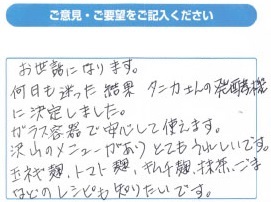 ご意見・ご要望をご記入ください
お世話になります。
何日も迷った結果 タニカさんの発酵機
に決定しました。
ガラス容器で安心して使えます。
沢山のメニューがありとてもうれしいです。
玉ネギ麹、トマト麹、キムチ麹、抹茶、ごま
などのレシピも知りたいです。